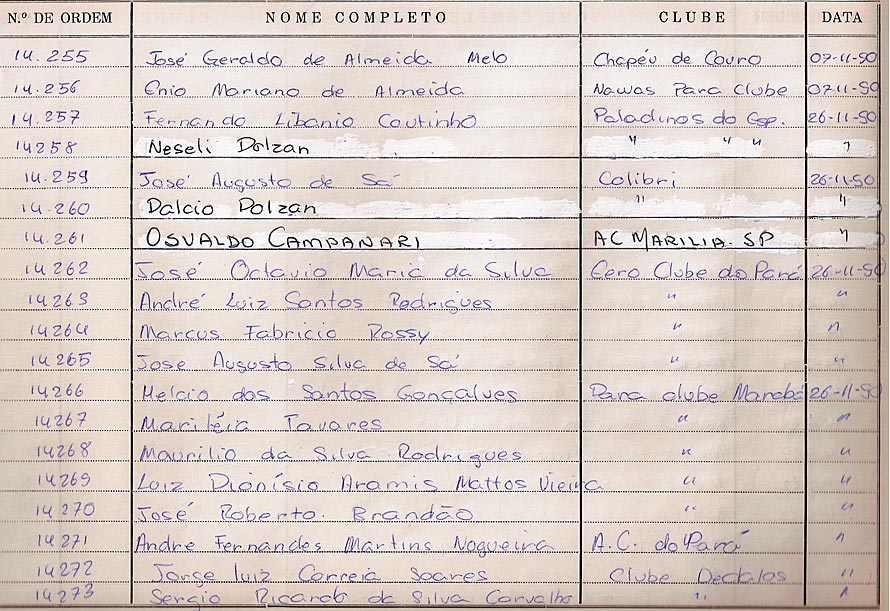 N.º DE ORDEM NOME COMPLETO CLUBE DATA
14.255 José Geraldo de Almeida Melo Chapéu de Couro 07-11-90
14.256 Enio Mariano de Almeida Nawas Para Clube 07-11-90
14.257 Fernando Libanio Coutinho Paladinos do Esp. 26-11-90
14258 Neseli Dolzan " " " "
14.259 José Augusto de Sá Colibri 26-11-90
14.260 Dalcio Dolzan " "
14.261 OSVALDO CAMPANARI AC MARILIA. SP "
14262 José Octavio Maria da Silva Cero Clube do Pará 26-11-90
14263 André Luiz Santos Rodrigues " "
14264 Marcus Fabricio Rossy " "
14265 Jose Augusto Silva de Sá " "
14266 Helcio dos Santos Gonçalves Para clube Marabá 26-11-90
14267 Mariléia Tavares " "
14268 Maurilio da Silva Rodrigues " "
14269 Luiz Dionísio Aramis Mattos Vieira " "
14270 José Roberto. Brandão " "
14271 Andre Fernandes Martins Nogueira A.C. do Pará "
14272 Jorge luiz Correia Soares Clube Dedalos "
14273 Sergio Ricardo da Silva Carvalho " "